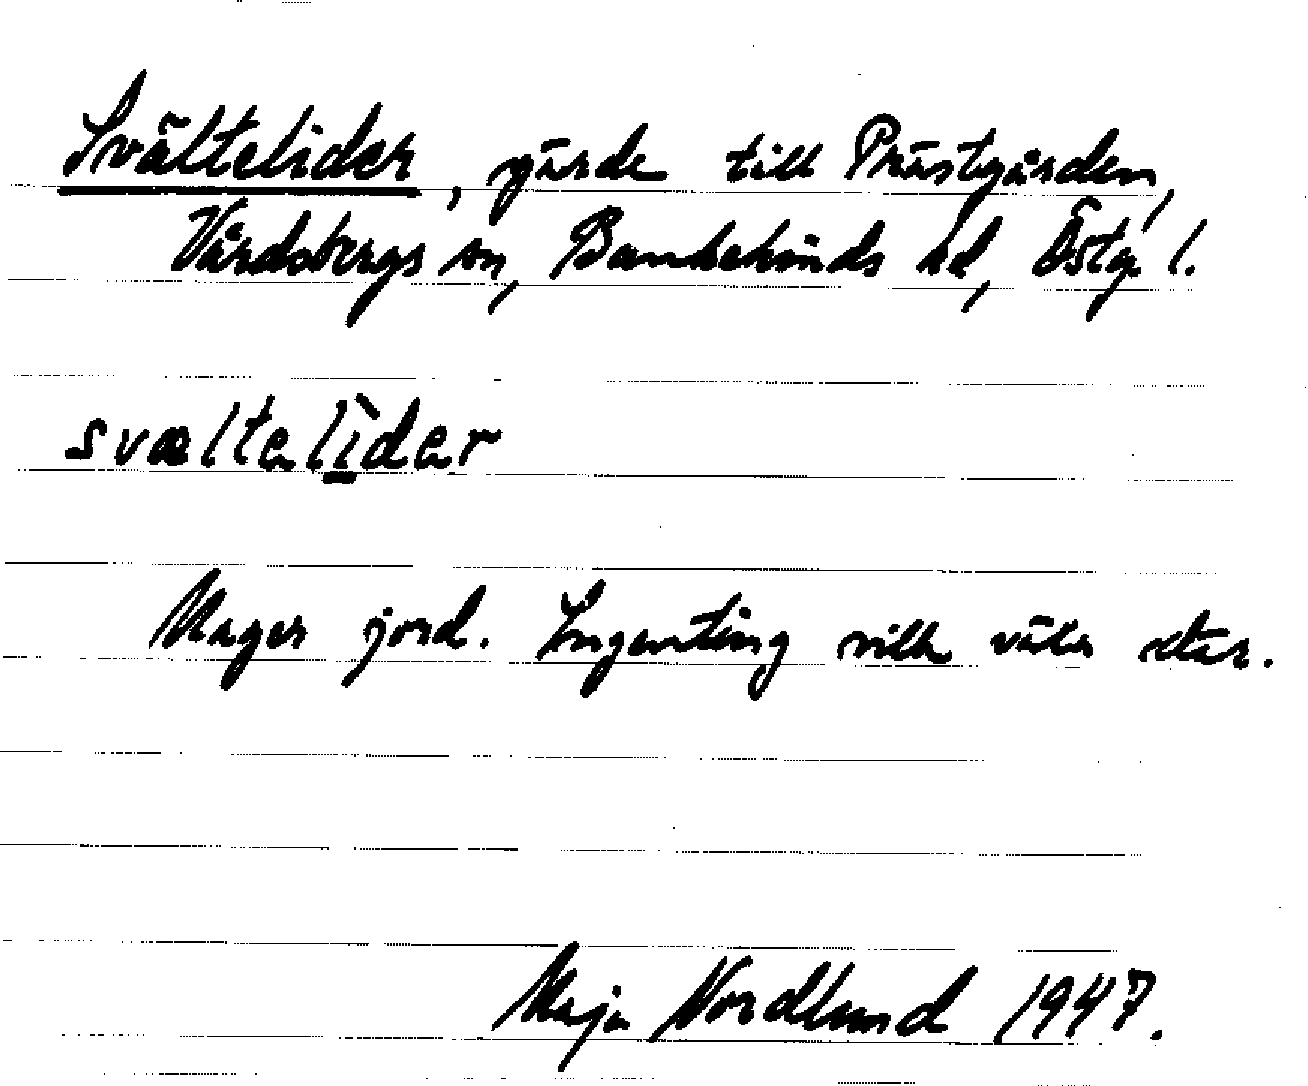 Svältelider, gärde till Prästgården,
Vårdsbergs sn, Bankekinds hd, Östg. l.
svæltelìder
Mager jord. Ingenting vill växa där.
Maja Nordlund 1947.